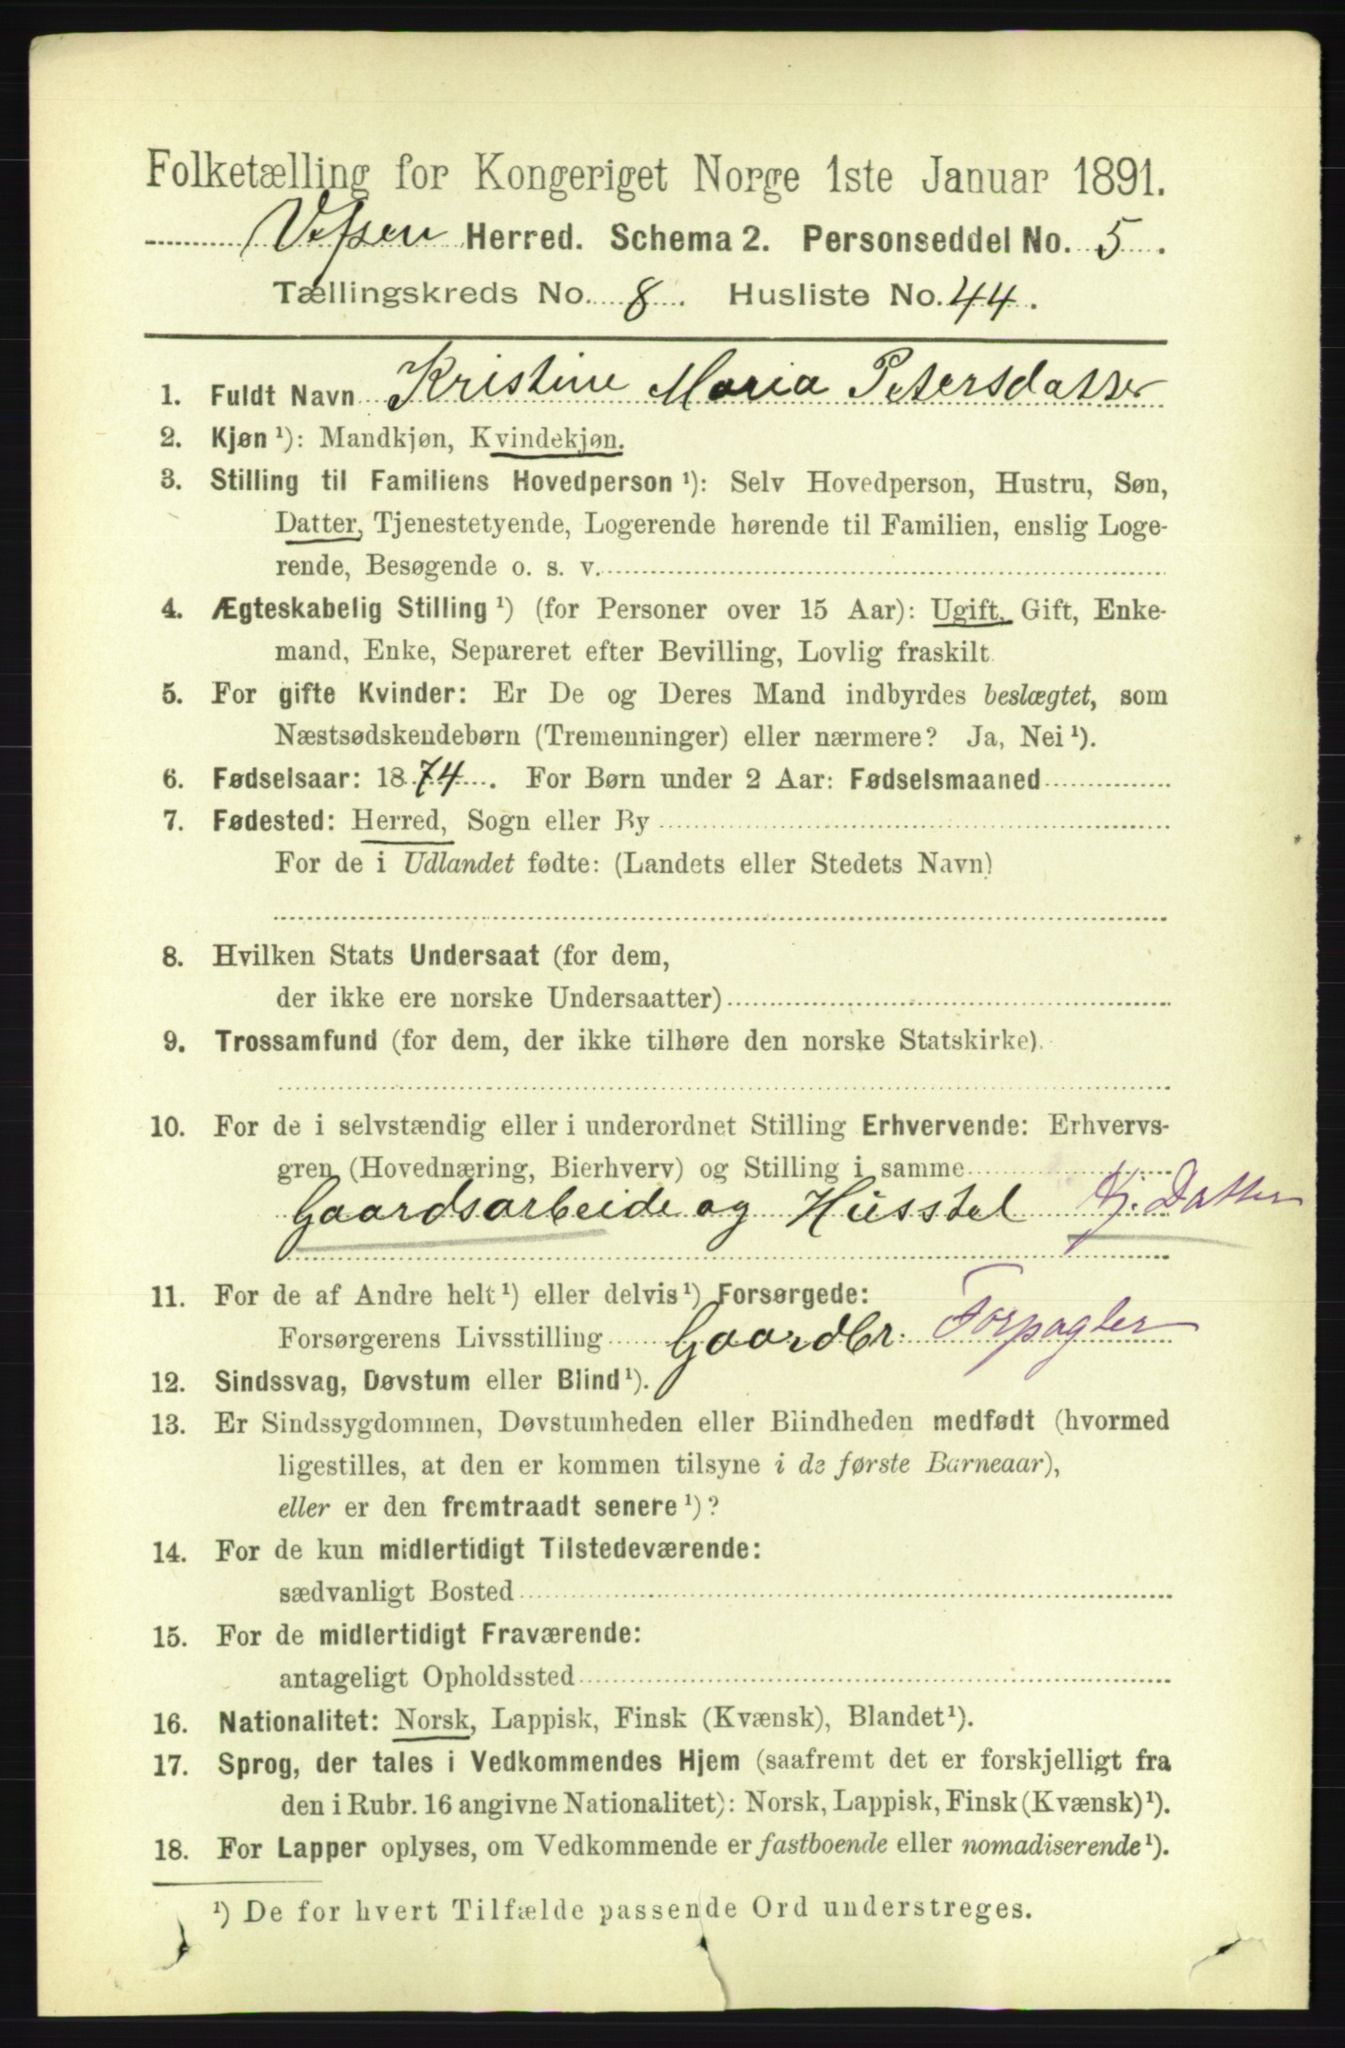 Folketælling for Kongeriget Norge 1ste Januar 1891.
Vefsen Herred. Schema 2. Personseddel No. 5.
Tællingskreds No. 8. Husliste No. 44.
1. Fuldt Navn Kristine Maria Petersdatter
2. Kjøn ¹): Mandkjøn, Kvindekjøn.
3. Stilling til Familiens Hovedperson ¹): Selv Hovedperson, Hustru, Søn,
Datter, Tjenestetyende, Logerende hørende til Familien, enslig Loge-
rende, Besøgende o. s. v.
4. Ægteskabelig Stilling ¹) (for Personer over 15 Aar): Ugift, Gift, Enke-
mand, Enke, Separeret efter Bevilling, Lovlig fraskilt
5. For gifte Kvinder: Er De og Deres Mand indbyrdes beslægtet, som
Næstsødskendebørn (Tremenninger) eller nærmere? Ja, Nei ¹).
6. Fødselsaar: 1874. For Børn under 2 Aar: Fødselsmaaned
7. Fødested: Herred, Sogn eller By
For de i Udlandet fødte: (Landets eller Stedets Navn)
8. Hvilken Stats Undersaat (for dem,
der ikke ere norske Undersaatter)
9. Trossamfund (for dem, der ikke tilhøre den norske Statskirke).
10. For de i selvstændig eller i underordnet Stilling Erhvervende: Erhvervs-
gren (Hovednæring, Bierhverv) og Stilling i samme
Gaardsarbeide og Husstel Kj. Datter
11. For de af Andre helt ¹) eller delvis ¹) Forsørgede:
Forsørgerens Livsstilling Gaardbr. Forpagter
12. Sindssvag, Døvstum eller Blind ¹).
13. Er Sindssygdommen, Døvstumheden eller Blindheden medfødt (hvormed
ligestilles, at den er kommen tilsyne i de første Barneaar),
eller er den fremtraadt senere ¹)?
14. For de kun midlertidigt Tilstedeværende:
sædvanligt Bosted
15. For de midlertidigt Fraværende:
antageligt Opholdssted
16. Nationalitet: Norsk, Lappisk, Finsk (Kvænsk), Blandet ¹).
17. Sprog, der tales i Vedkommendes Hjem (saafremt det er forskjelligt fra
den i Rubr. 16 angivne Nationalitet): Norsk, Lappisk, Finsk (Kvænsk) ¹).
18. For Lapper oplyses, om Vedkommende er fastboende eller nomadiserende ¹).
¹) De for hvert Tilfælde passende Ord understreges.